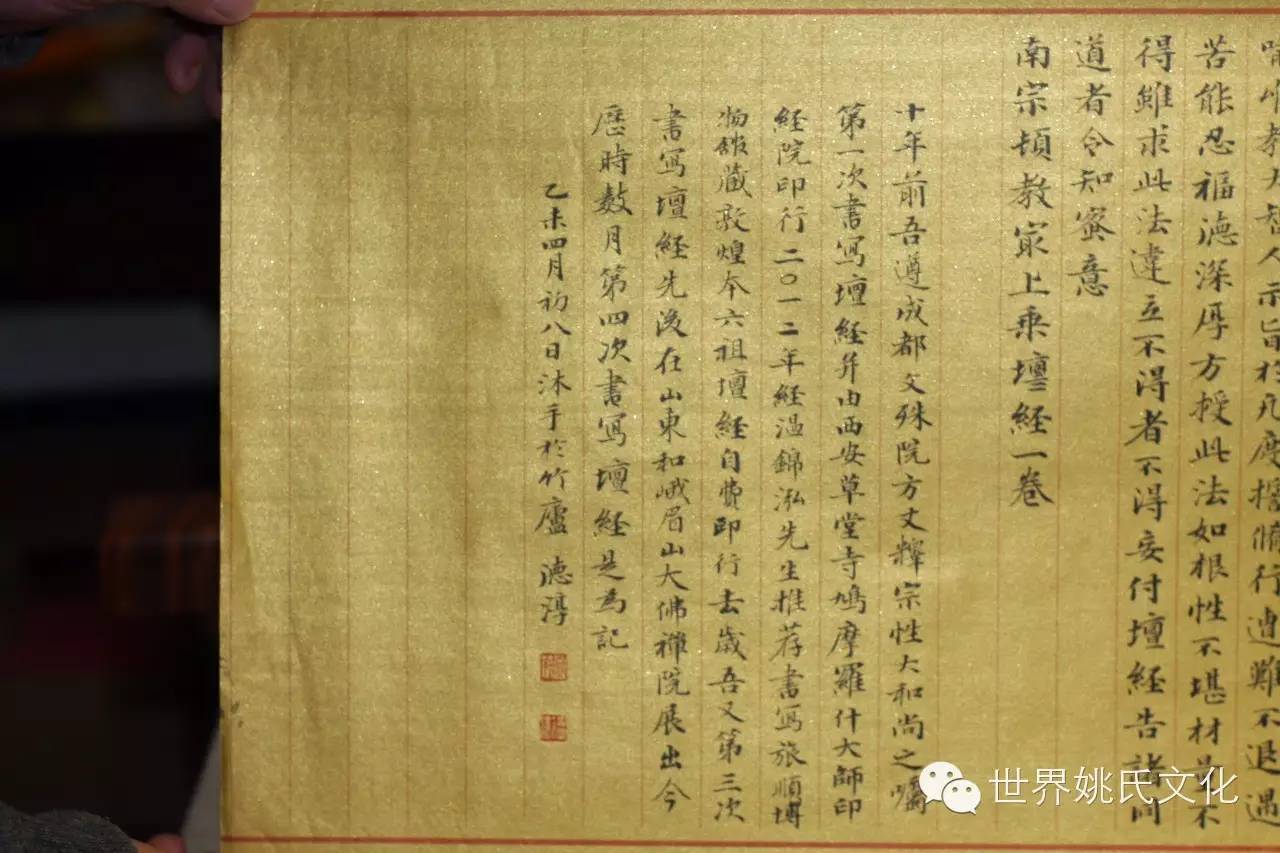 教大智人示旨於凡度擔修行遭難不退遇
苦能忍福德深厚方授此法如根性不堪材量不
得雖求此法違立不得者不得妄付壇經告諸同
道者令知蜜意
南宗頓教冣上乘壇經一卷
十年前吾遵成都文殊院方丈釋宗性大和尚之囑
第一次書寫壇經并由西安草堂寺鳩摩羅什大師印
経院印行二〇一二年経温錦泓先生推荐書寫旅順博
物館藏敦煌本六祖壇経自費印行去歲吾又第三次
書寫壇経先後在山東和峨眉山大佛禅院展出今
歷時數月第四次書寫壇経是為記
乙未四月初八日沐手於竹廬 德淳
世界姚氏文化